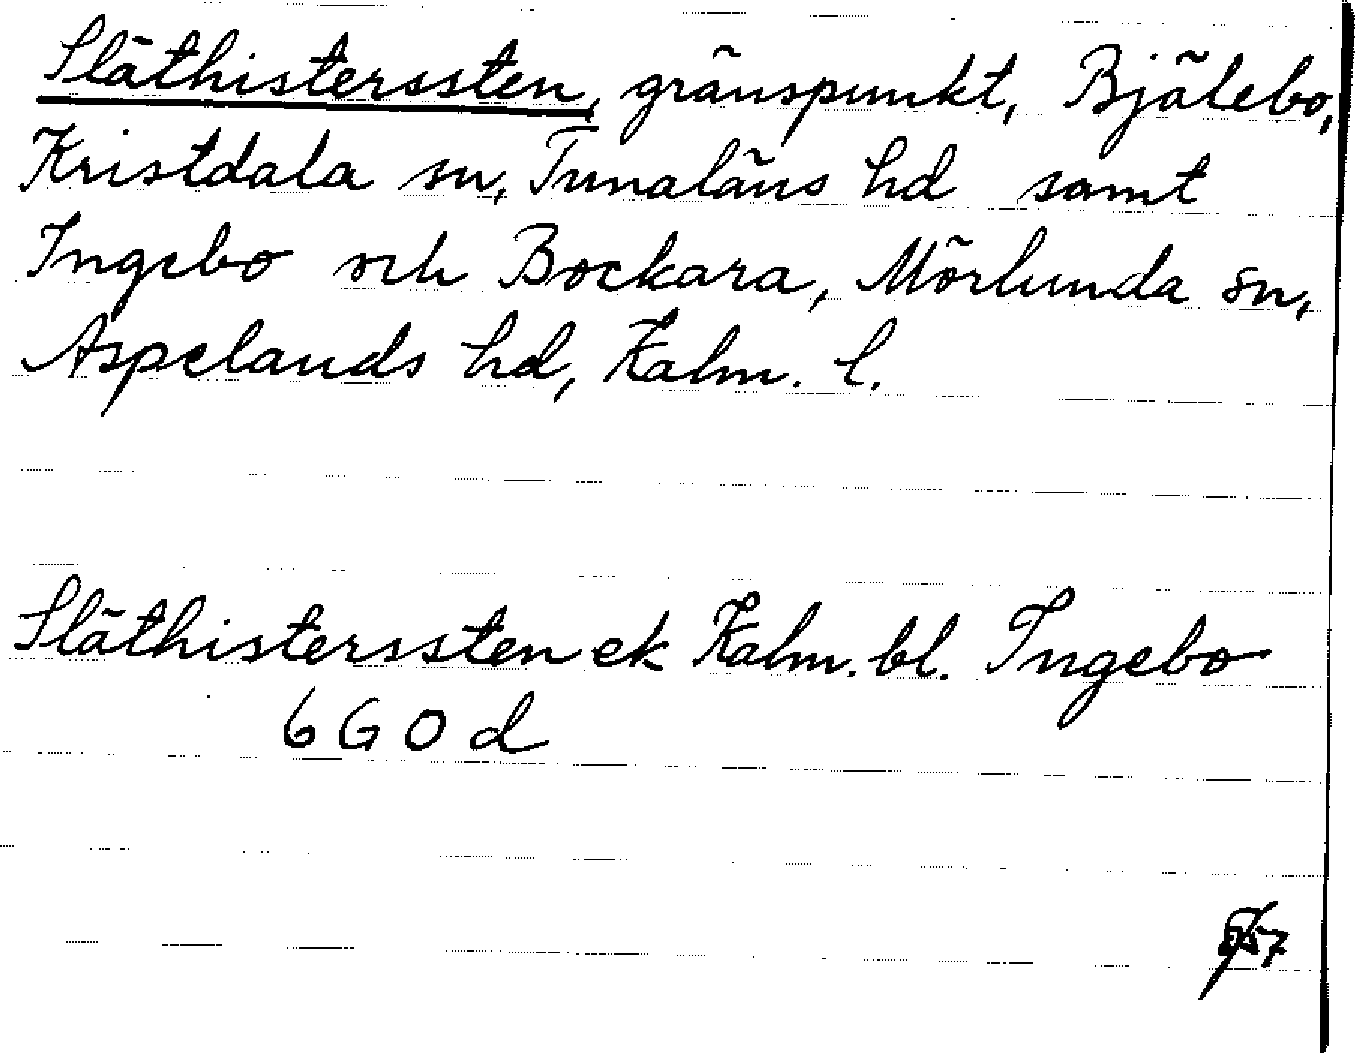 Släthisterssten, gränspunkt, Bjälebo,
Kristdala sn, Tunaläns hd samt
Ingebo och Bockara, Mörlunda sn,
Aspelands hd, Kalm. l.
Släthisterssten ek Kalm. bl. Ingebo
6 G 0 d